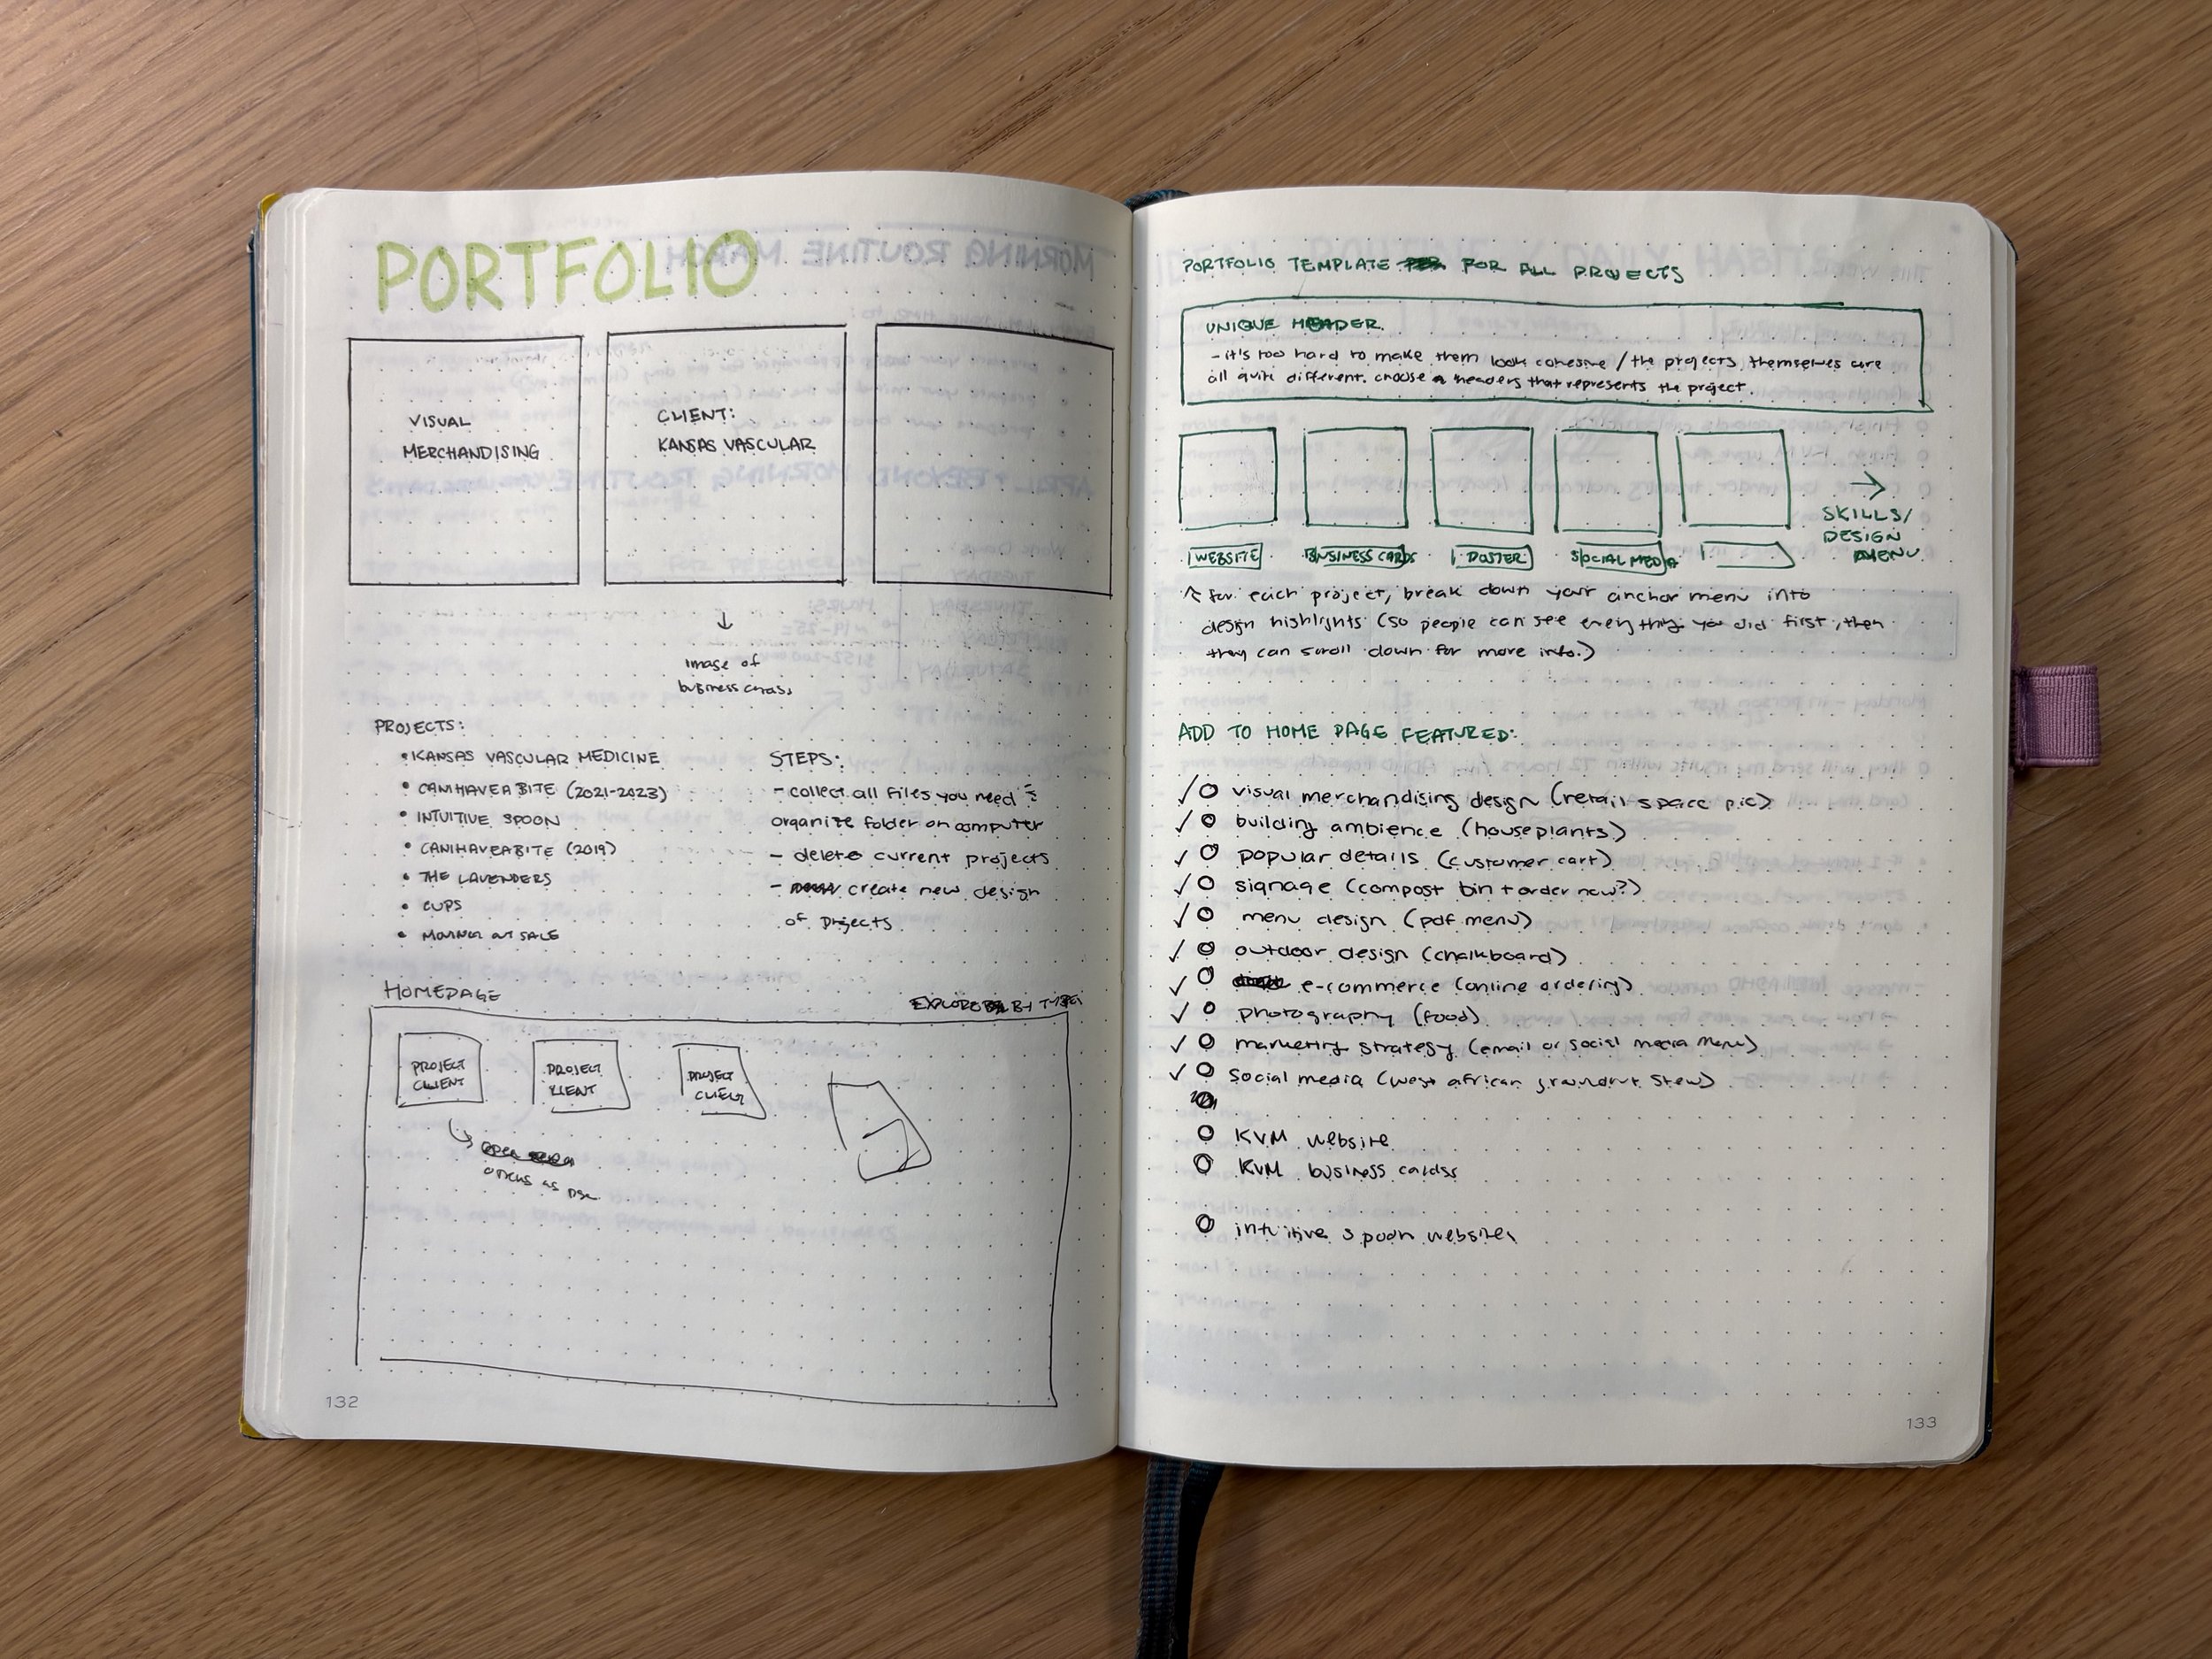 PORTFOLIO
VISUAL
MERCHANDISING
CLIENT:
KANSAS VASCULAR
↓
image of
business cards
PROJECTS:
• KANSAS VASCULAR MEDICINE
• CANIHAVEABITE (2021-2023)
• INTUITIVE SPOON
• CANIHAVEABITE (2019)
• THE LAVENDERS
• CUPS
• MOVING SALE
STEPS:
- collect all files you need
organize folder on computer
- delete current projects
- create new design
of projects
HOMEPAGE
EXPLORE BY TYPE
PROJECT
CLIENT
PROJECT
CLIENT
PROJECT
CLIENT
opens as
132
PORTFOLIO TEMPLATE FOR ALL PROJECTS
UNIQUE HEADER
- it's too hard to make them look cohesive / the projects themselves are
all quite different. choose a headers that represents the project.
WEBSITE
BUSINESS CARDS
POSTER
SOCIAL MEDIA
→
SKILLS/
DESIGN
MENU
^ for each project, break down your anchor menu into
design highlights (so people can see everything you did first, then
they can scroll down for more info.)
ADD TO HOME PAGE FEATURED:
✓ O visual merchandising design (retail space pic)
✓ O building ambience (houseplants)
✓ O popular details (customer cart)
✓ O signage (compost bin + order now?)
✓ O menu design (pdf menu)
✓ O outdoor design (chalkboard)
✓ O e-commerce (online ordering)
✓ O photography (food)
✓ O marketing strategy (email or social media menu)
✓ O social media (west african groundnut stew)
O KVM website
O KVM business cardss
O intuitive spoon website
133